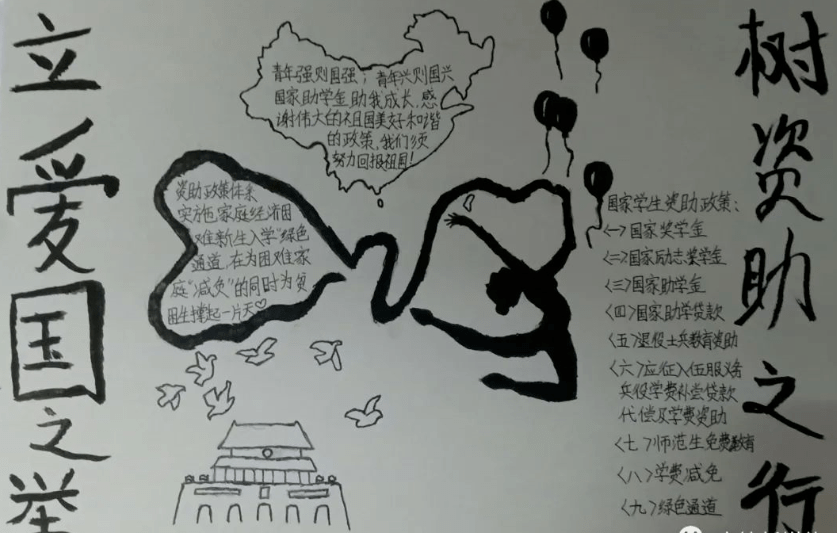 立爱国之举
青年强则国强；青年兴则国兴
国家助学金助我成长，感
谢伟大的祖国美好和谐
的政策，我们须
努力回报祖国！
资助政策体系
实施家庭经济困
难新生入学“绿色
通道，在为困难家
庭“减免”的同时为贫
困生撑起一片天♡
国家学生资助政策：
〈一〉国家奖学金
〈二〉国家励志奖学金
〈三〉国家助学金
〈四〉国家助学贷款
〈五〉退役士兵教育资助
〈六〉应征入伍服义务
兵役学费补偿贷款
代偿及学费资助
〈七〉师范生免费教育
〈八〉学费减免
〈九〉绿色通道
树资助之行